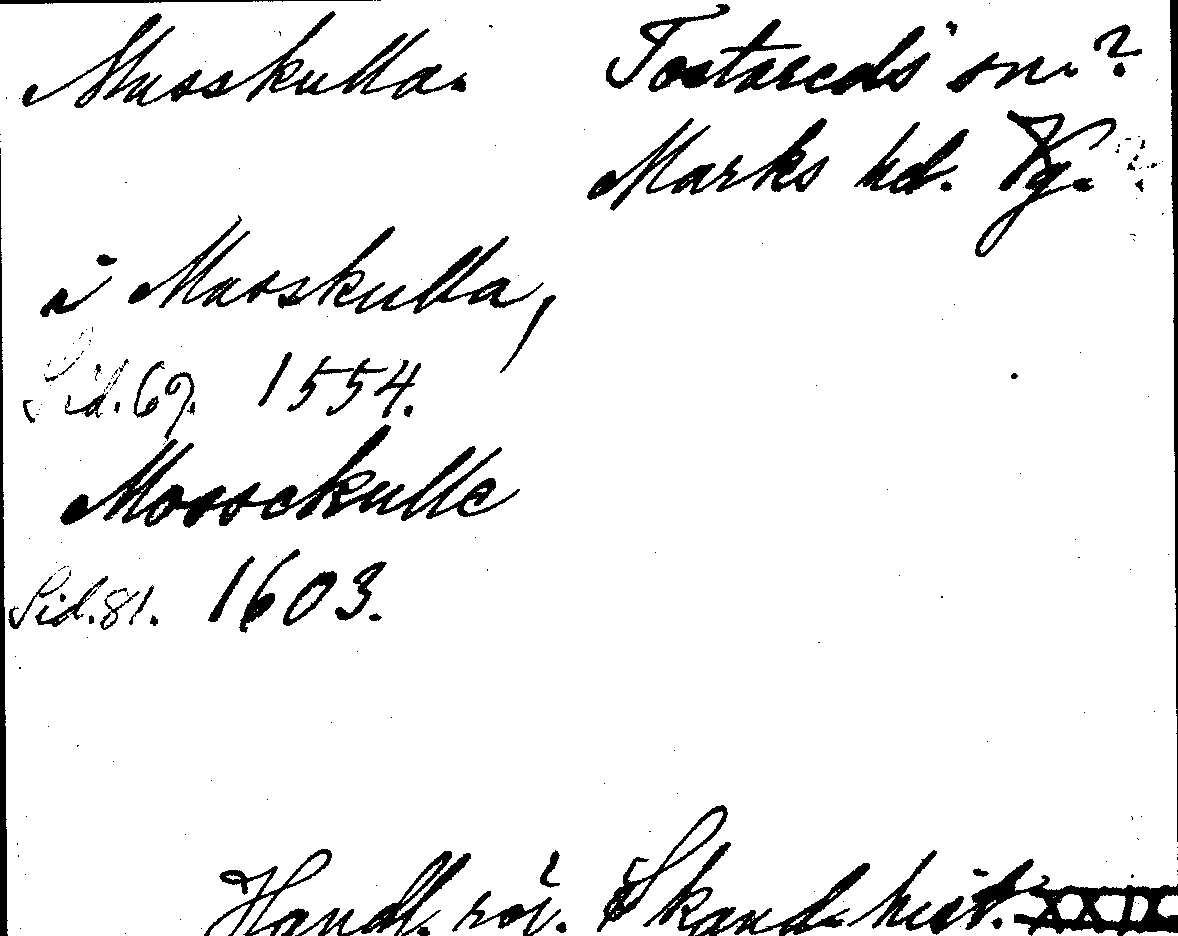 Masskulla. Tostareds sn.?
Marks hd. Vg. ?
i Masskulla,
Sid. 69. 1554.
Mossekulle
Sid. 81. 1603.
Handl. rör. Skand. hist. XXIX